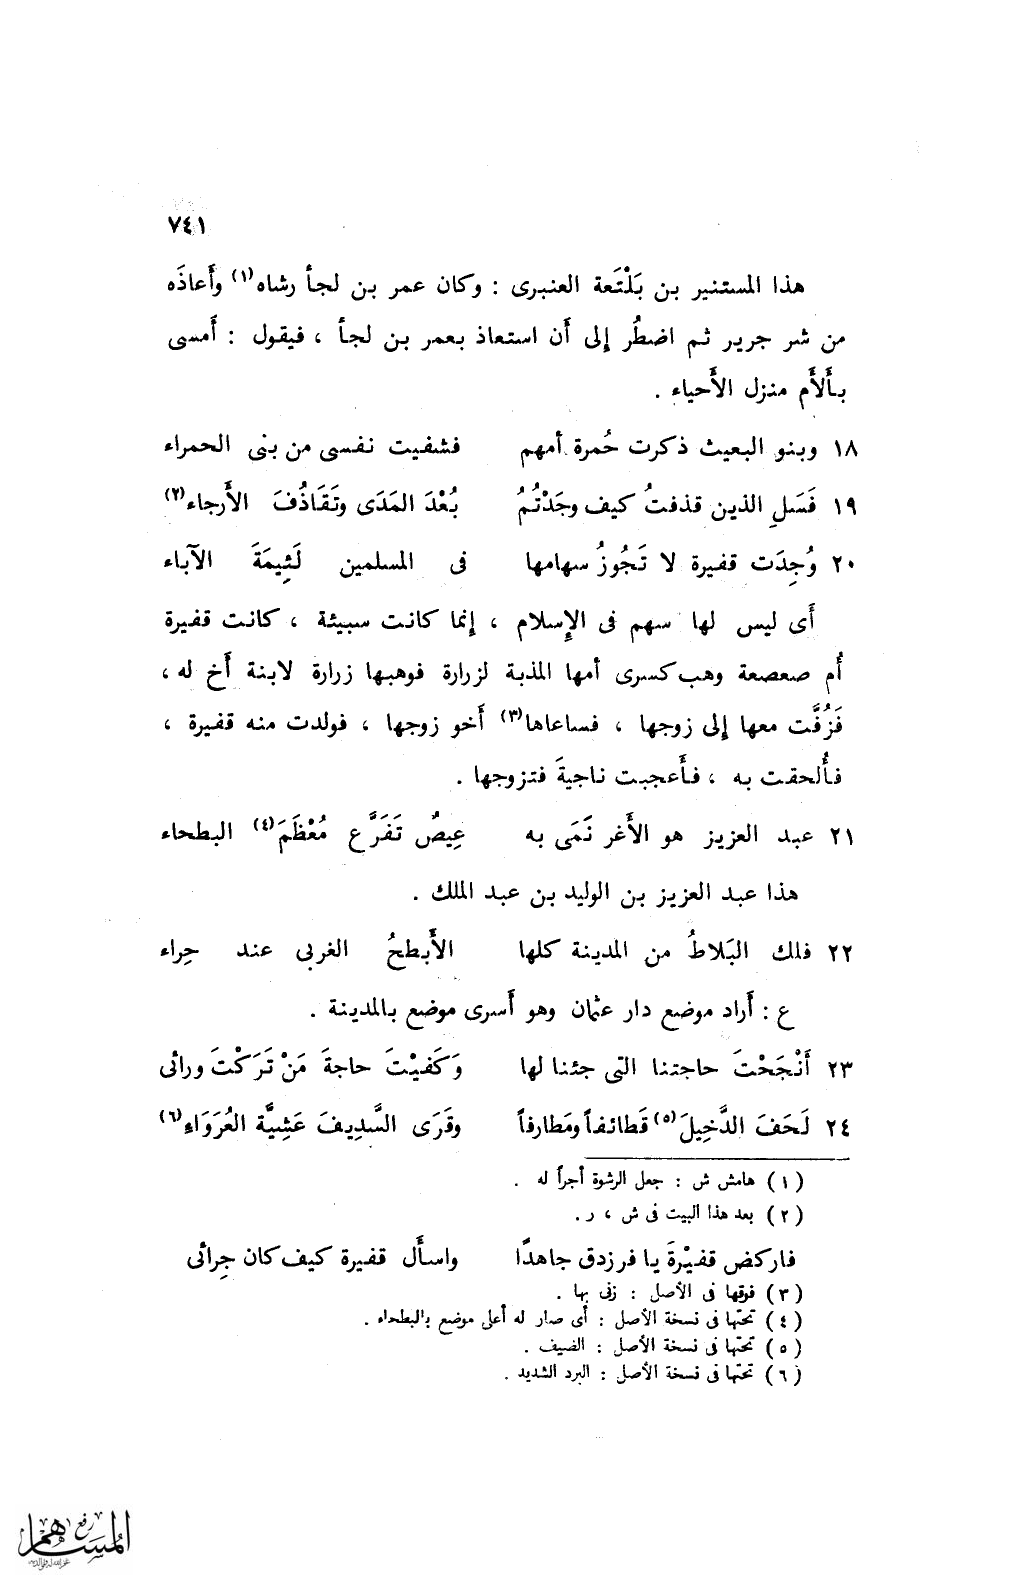 ٧٤١
هذا المستنير بن بَلْتَعة العنبرى : وكان عمر بن لجأ رشاه(١) وأَعاذَه
من شر جرير ثم اضطُر إلى أَن استعاذ بعمر بن لجأ ، فيقول : أَمسى
بأَلأَم منزل الأَحياء .
١٨ وبنو البعيث ذكرت حُمرة أمهم فشفيت نفسى من بنى الحمراء
١٩ فَسَلِ الذين قذفتُ كيف وجَدْتُمُ بُعْدَ المَدَى وتَقَاذُفَ الأَرجاء(٢)
٢٠ وُجِدَت قفيرة لا تَجُوزُ سهامها فى المسلمين لَئِيمَةَ الآباء
أَى ليس لها سهم فى الإِسلام ، إِنما كانت سبيئة ، كانت قفيرة
أُم صعصعة وهب كسرى أمها المذبة لزرارة فوهبها زرارة لابنة أَخ له ،
فَزُفَّت معها إِلى زوجها ، فساعاها(٣) أَخو زوجها ، فولدت منه قفيرة ،
فأُلحقت به ، فأَعجبت ناجيةَ فتزوجها .
٢١ عبد العزيز هو الأَغر نَمَى به عِيصٌ تَفَرَّع مُعْظَمَ(٤) البطحاء
هذا عبد العزيز بن الوليد بن عبد الملك .
٢٢ فلك البَلاطُ من المدينة كلها الأَبطحُ الغربى عند حِراء
ع : أَراد موضع دار عثمان وهو أَسرى موضع بالمدينة .
٢٣ أَنْجَحْتَ حاجتنا التى جئنا لها وَكَفيْتَ حاجةَ مَنْ تَرَكْتَ ورائى
٢٤ لَحَفَ الدَّخِيلَ(٥) قَطائفاً ومَطارفاً وقَرَى السَّدِيفَ عَشِيَّة العُرَوَاءِ(٦)
(١) هامش ش : جعل الرشوة أجراً له .
(٢) بعد هذا البيت فى ش ، ر .
فاركض قفيْرةَ يا فرزدق جاهدًا واسأَل قفيرة كيف كان جِرائى
(٣) فوقها فى الأصل : زنى بها .
(٤) تحتها فى نسخة الأصل : أى صار له أعلى موضع بالبطحاء .
(٥) تحتها فى نسخة الأصل : الضيف .
(٦) تحتها فى نسخة الأصل : البرد الشديد .
رفع
المساهم